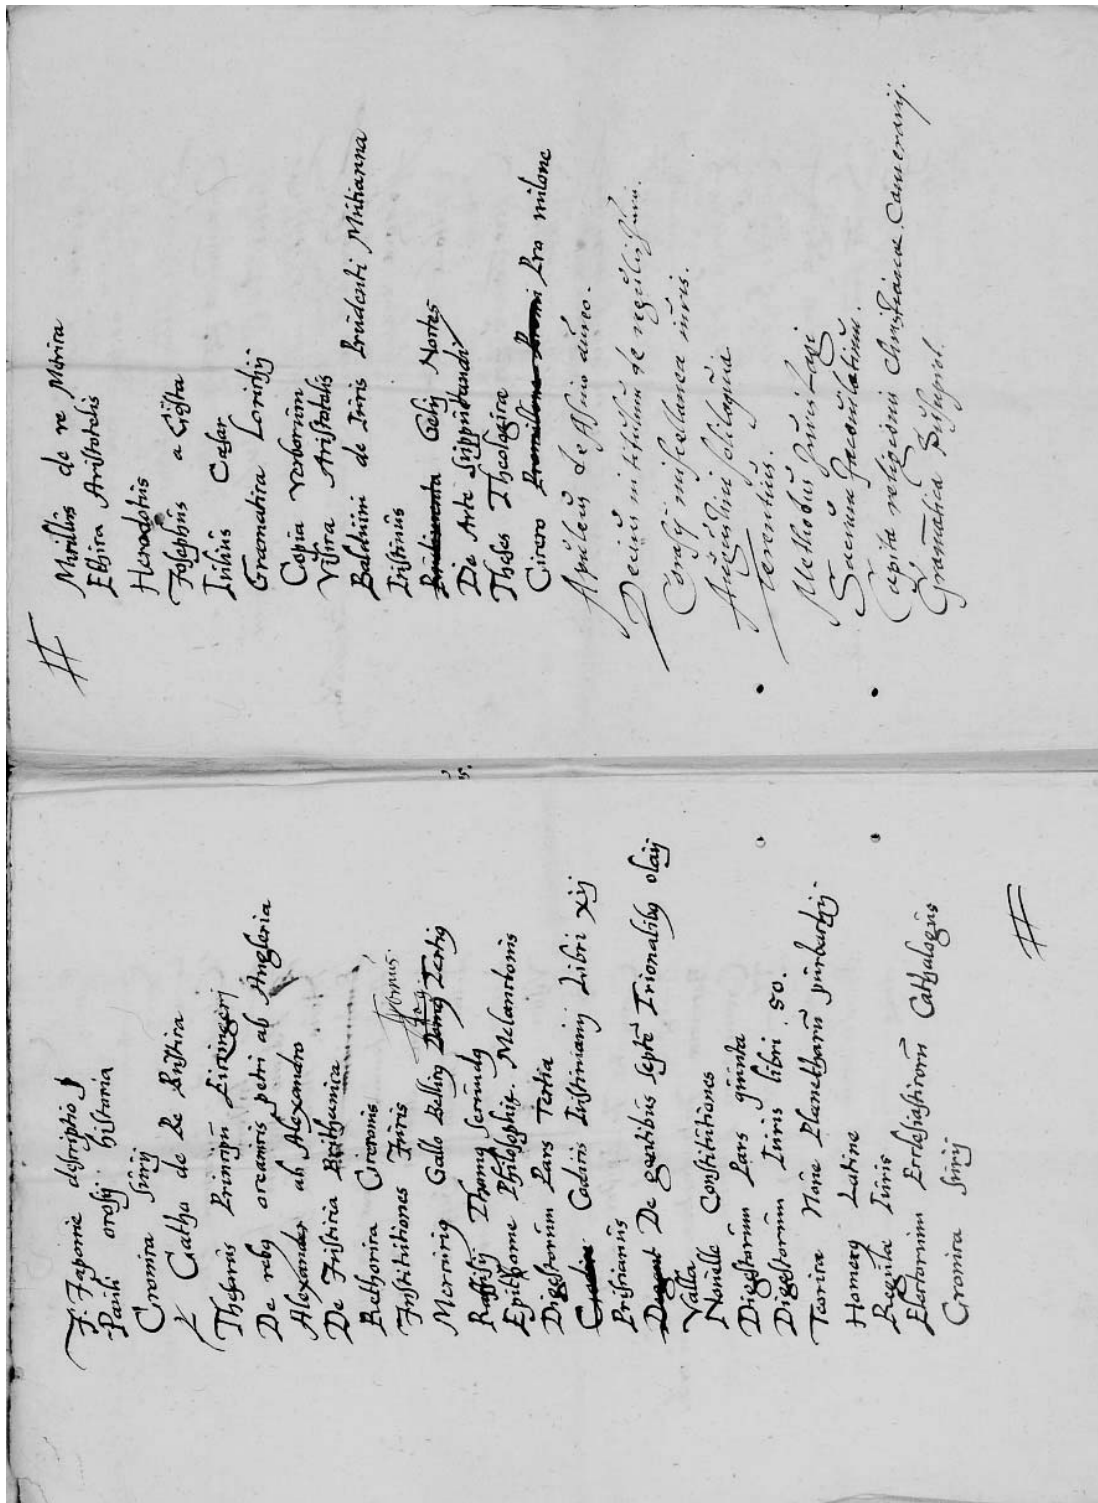 J. Japonie descriptio
Pauli orosij historia
Cronica surij
Catho de Re Rustica
Thesarus Principū
De rebꝫ oceanicis petri ab Angleria
Alexander ab Alexandro
De Tristicia Brithanica
Rethorica Ciceronis
Institutiones Juris
Mercuriꝫ Gallo Belliꝫ Tertiꝫ
Thomꝫ Secundꝫ
Epithome Philosophiꝫ. Melanctonis
Digestorum Pars Tertia
Codicis Iustiniani Libri xij
Priscianus
De gentibus Septē Trionalibꝫ olaij
Valla
Nouelle Constitutiones
Digestorum Pars quinta
Digestorum Iuris libri 50.
Teorica Noue Planetharū purbachij.
Homerꝫ Latine
Regula Iuris
Electorum Ecclesiasticorū Cathalogus
Cronica surij
#
5.
#
Mirillus de re Metrica
Ethica Aristotelis
Herodotus
Josephus a Costa
Iulius Cæsar
Gramatica
Copia verborum
Visica Aristotelis
Balduini de Iuris Prudenti Mutianna
Iustinus
Gelij Noctes
De Arte Supputandi
Theses Theologicæ
Cicero Pro milone
Apuleus de Asino aureo.
Decius in titulum de reguliis Juris.
Corasij miscellanea iuris.
Augustini soliloquia.
Terentius.
Methodus Juris
Capita religionis Christianæ Camerarij.
Gramatica